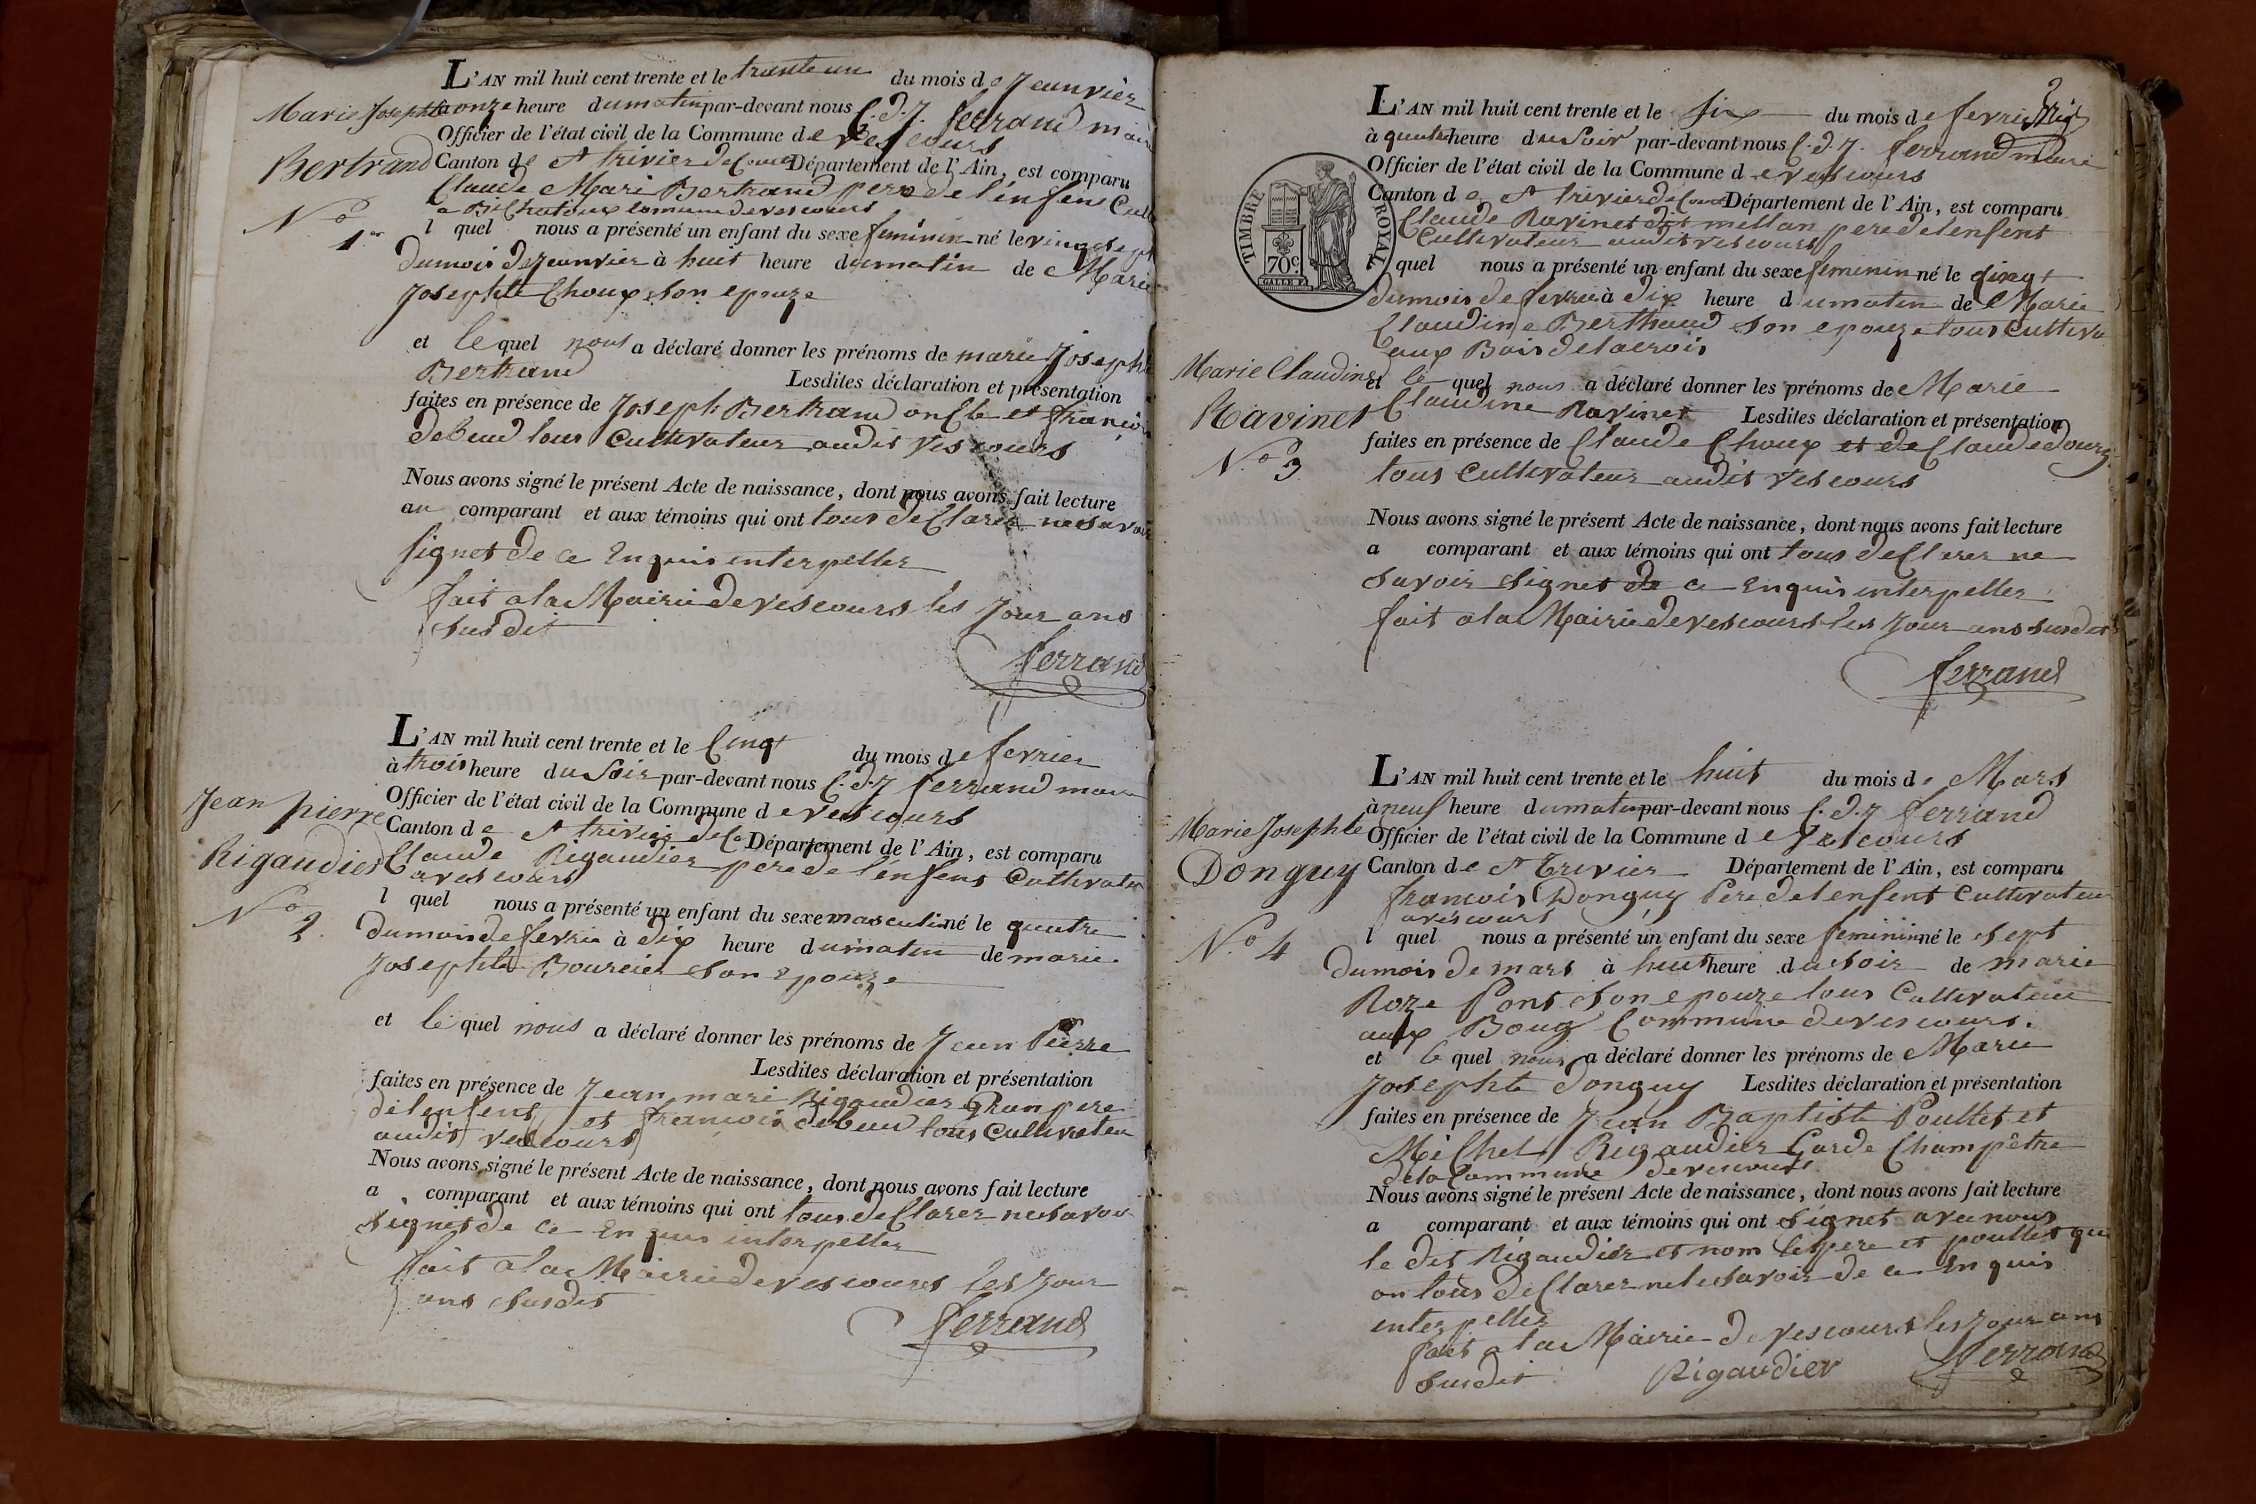 L'AN mil huit cent trente et le trente un du mois de Jeanvier
Marie Josephte
à onze heure du matin par-devant nous C. d. J. ferrand maire
Officier de l'état civil de la Commune de vescours
Bertrand
Canton de St trivier de Cour Département de l'Ain, est comparu
Claude Mari Bertrand pere de l'enfent Cult
a commune de vescours
N.o 1er
l quel nous a présenté un enfant du sexe feminin né le vingt sept
du mois de Jeanvier à huit heure du matin de Marie
Josephte Choux son epouze
et le quel nous a déclaré donner les prénoms de marie Josephte
Bertrand Lesdites déclaration et présentation
faites en présence de Joseph Bertrand oncle et françois
debeud tous Cultivateur audit Vescours
Nous avons signé le présent Acte de naissance, dont nous avons fait lecture
au comparant et aux témoins qui ont tous declarer ne savoir
signet de ce Enquis interpeller
fait a la Mairie de vescours les Jour ans
susdit
ferrand
L'AN mil huit cent trente et le Cinqt du mois de fevrier
à trois heure du soir par-devant nous C. d. J ferrand maire
Jean pierre
Officier de l'état civil de la Commune de vescours
Canton de St trivier de Co Département de l'Ain, est comparu
Rigaudier
Claude Rigaudier pere de l'enfent Cultivateur
a vescours
N.o 2.
l quel nous a présenté un enfant du sexe masculin né le quatre
du mois de fevrie à dix heure du matin de marie
Josephte Bourcier son epouze
et le quel nous a déclaré donner les prénoms de Jean Pierre
Lesdites déclaration et présentation
faites en présence de Jean mari Rigaudier Gran pere
de lenfent et françois debeud tous Cultivateur
audit vescours
Nous avons signé le présent Acte de naissance, dont nous avons fait lecture
a comparant et aux témoins qui ont tous declarer ne savoir
signet de ce Enquis interpeller
fait a la Mairie de vescours les Jour
ans susdit
ferrand
L'AN mil huit cent trente et le six du mois de fevrie
à quatre heure du soir par-devant nous C. d. J. ferrand maire
Officier de l'état civil de la Commune de vescours
Canton de St trivier de Cour Département de l'Ain, est comparu
Claude Ravinet dit mellan pere de lenfent
Cultivateur audit vescours
TIMBRE ROYAL
70c.
quel nous a présenté un enfant du sexe feminin né le cinqt
du mois de fevrie à dix heure du matin de Marie
Claudine Berthaud son epouze tous Cultiva
aux Bois de lacrois
Marie Claudine
et le quel nous a déclaré donner les prénoms de Marie
Ravinet
Claudine Ravinet Lesdites déclaration et présentation
faites en présence de Claude Choux et de Claude
N.o 3
tous Cultivateur audit Vescours
Nous avons signé le présent Acte de naissance, dont nous avons fait lecture
a comparant et aux témoins qui ont tous declarer ne
savoir signet de ce Enquis interpeller
fait a la Mairie de vescours les Jour ans susdit
ferrand
L'AN mil huit cent trente et le huit du mois de Mars
à neuf heure du matin par-devant nous C. d. J ferrand
Marie Josephte
Officier de l'état civil de la Commune de Vescours
Donguy
Canton de St Trivier Département de l'Ain, est comparu
francois Donguy Pere de lenfent Cultivateur
a vescours
N.o 4
l quel nous a présenté un enfant du sexe feminin né le sept
du mois de mars à huit heure du soir de marie
Roze Pont son epouze tous Cultivateur
aux Boug Commune de vescours.
et le quel nous a déclaré donner les prénoms de Marie
Josephte donguy Lesdites déclaration et présentation
faites en présence de Jean Baptiste Poullet et
Michel Rigaudier Garde Champêtre
de la Commune de vescours
Nous avons signé le présent Acte de naissance, dont nous avons fait lecture
a comparant et aux témoins qui ont signet avec nous
le dit Rigaudier et nom le pere et poullet qui
on tous declarer ne le savoir de ce Enquis
interpeller
fait a la Mairie de vescours les Jour ans
susdit
Rigaudier
ferrand